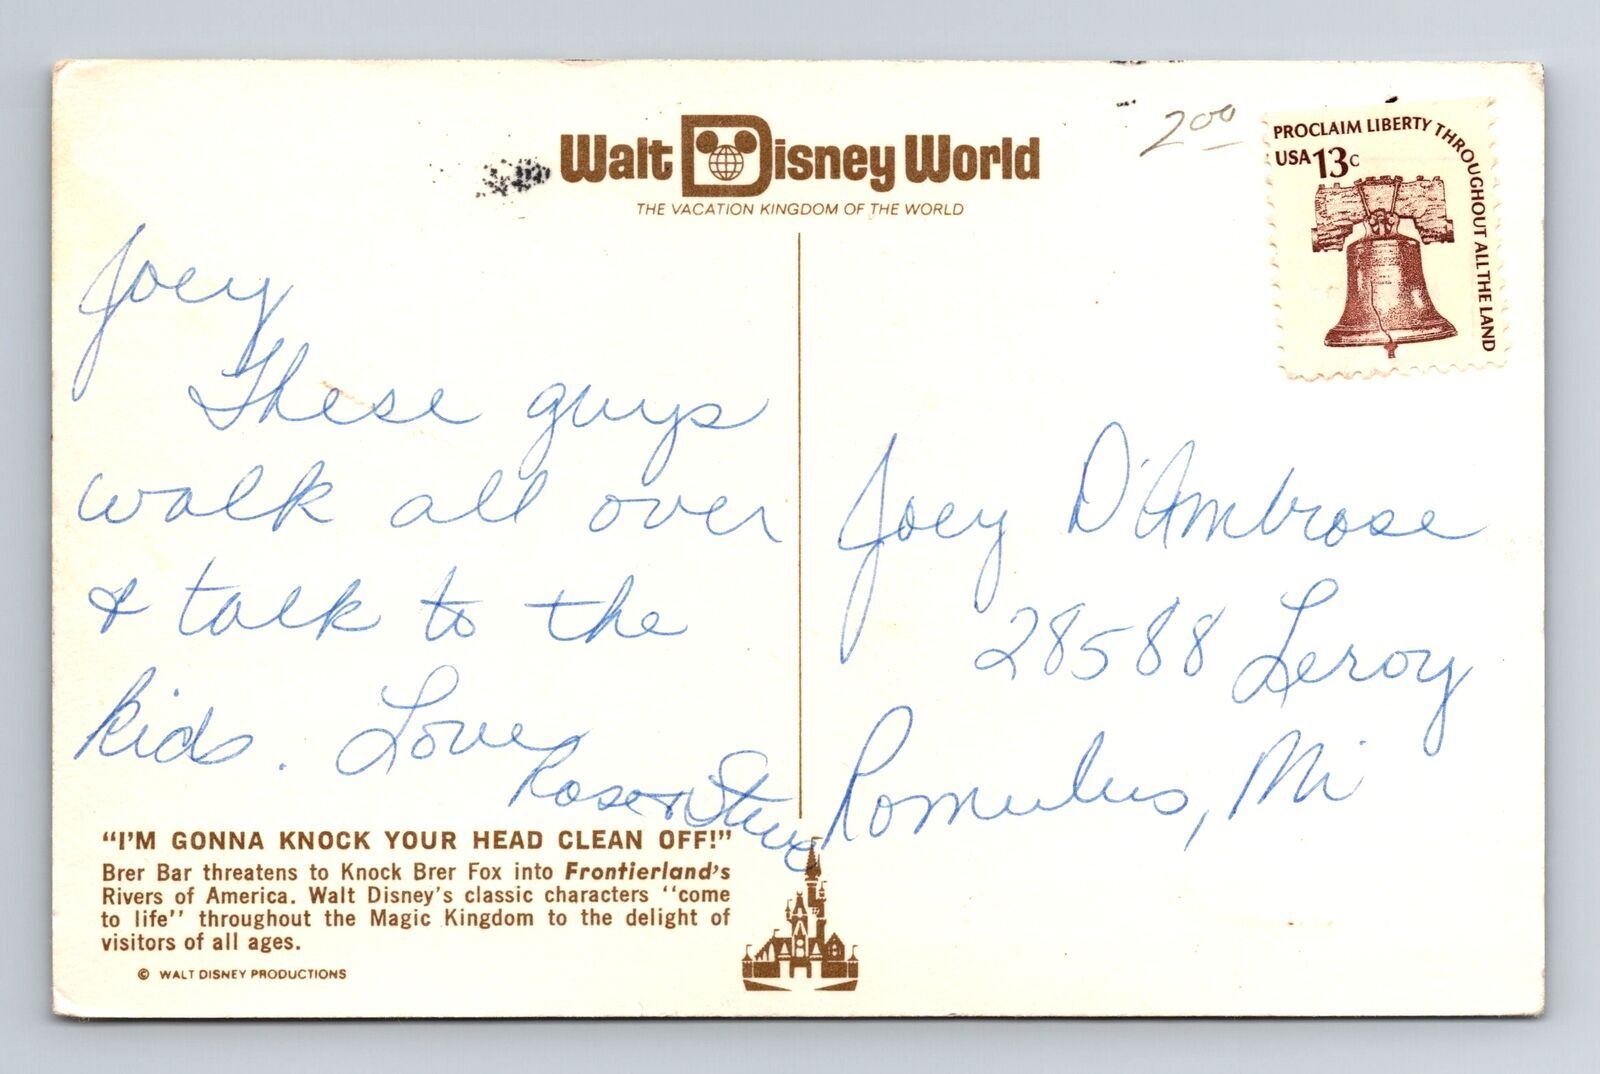 Walt Disney World
THE VACATION KINGDOM OF THE WORLD
200
PROCLAIM LIBERTY THROUGHOUT ALL THE LAND
USA 13c
Joey
These guys
walk all over
& talk to the
kids. Love,
Rose &
Joey D'Ambrose
28588 Leroy
Romulus, Mi
"I'M GONNA KNOCK YOUR HEAD CLEAN OFF!"
Brer Bar threatens to Knock Brer Fox into Frontierland's
Rivers of America. Walt Disney's classic characters "come
to life" throughout the Magic Kingdom to the delight of
visitors of all ages.
© WALT DISNEY PRODUCTIONS